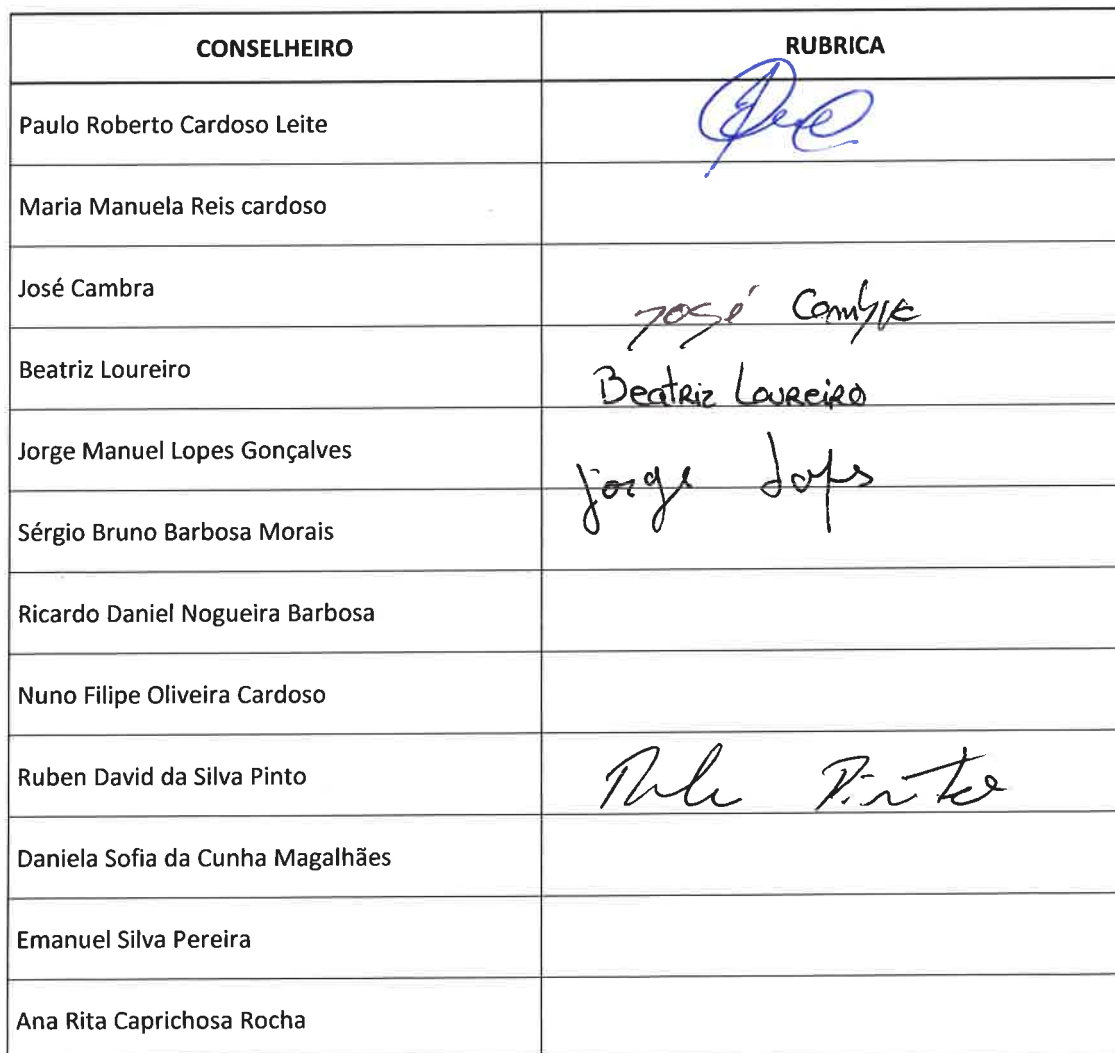 CONSELHEIRO RUBRICA
Paulo Roberto Cardoso Leite
Maria Manuela Reis cardoso
José Cambra José Cambra
Beatriz Loureiro Beatriz Loureiro
Jorge Manuel Lopes Gonçalves Jorge Lopes
Sérgio Bruno Barbosa Morais
Ricardo Daniel Nogueira Barbosa
Nuno Filipe Oliveira Cardoso
Ruben David da Silva Pinto Pinto
Daniela Sofia da Cunha Magalhães
Emanuel Silva Pereira
Ana Rita Caprichosa Rocha